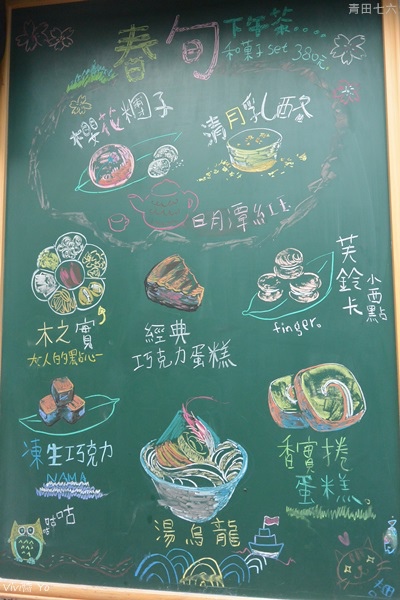 青田七六
春旬
下午茶....
和菓子set 380元
櫻花糰子
清月乳酪
日月潭紅玉
木之實
大人的點心
經典
巧克力蛋糕
芙鈴卡
小西點
finger。
凍生巧克力
NAMA
香賓捲
蛋糕。
湯烏龍
咕咕